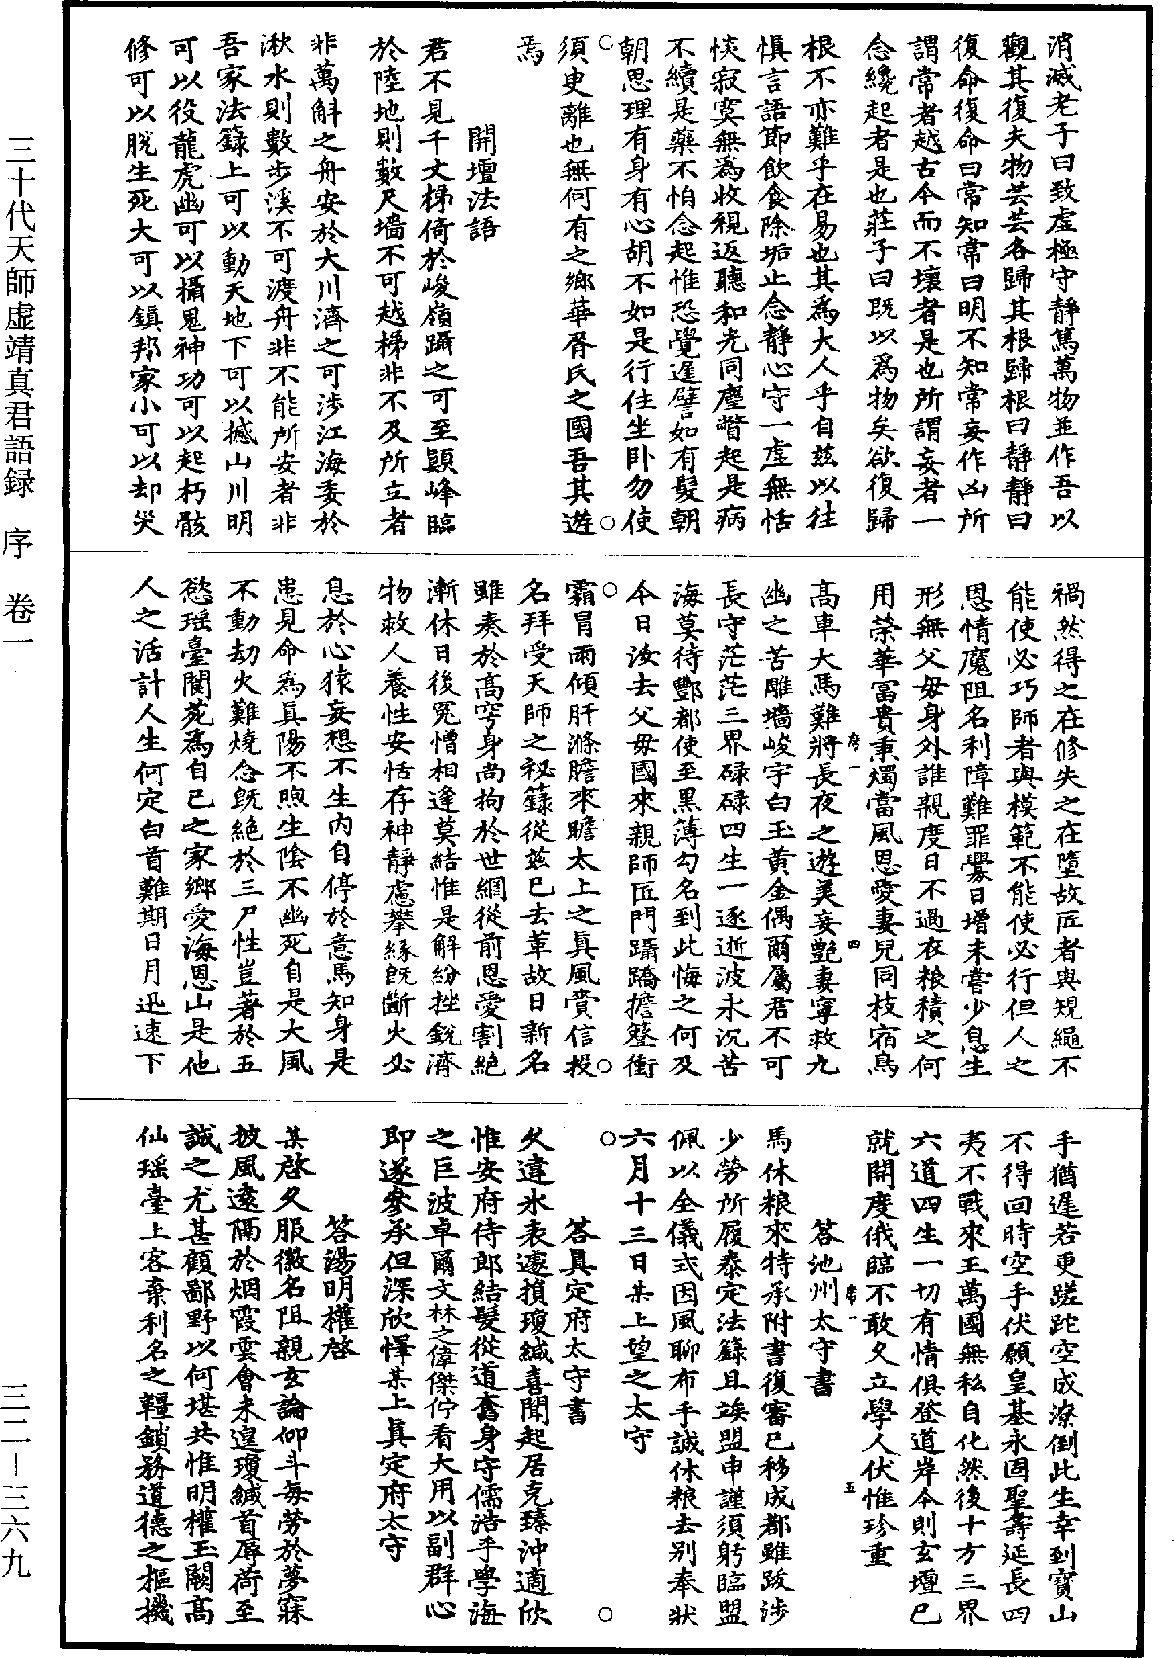 消滅老子曰致虛極守靜篤萬物並作吾以
觀其復夫物芸芸各歸其根歸根曰靜靜曰
復命復命曰常知常曰明不知常妄作凶所
謂常者越古今而不壞者是也所謂妄者一
念纔起者是也莊子曰既以為物矣欲復歸
根不亦難乎在易也其為大人乎自茲以往
慎言語節飲食除垢止念靜心守一虛無恬
惔寂寞無為收視返聽和光同塵瞥起是病
不續是藥不怕念起惟恐覺遲譬如有髮朝
朝思理有身有心胡不如是行住坐臥勿使
須臾離也無何有之鄉華胥氏之國吾其遊
焉
開壇法語
君不見千丈梯倚於峻嶺躡之可至顛峰臨
於陸地則數尺墻不可越梯非不及所立者
非萬斛之舟安於大川濟之可涉江海委於
湫水則數步溪不可渡舟非不能所安者非
吾家法籙上可以動天地下可以撼山川明
可以役龍虎幽可以攝鬼神功可以起朽骸
修可以脫生死大可以鎮邦家小可以却災
禍然得之在修失之在墮故匠者與規繩不
能使必巧師者與模範不能使必行但人之
恩情魔阻名利障難罪釁日增未嘗少息生
形無父母身外誰親度日不過衣粮積之何
用榮華富貴秉燭當風恩愛妻兒同枝宿鳥
高車大馬難將長夜之遊美妾艷妻寧救九
幽之苦雕墻峻宇白玉黃金偶爾屬君不可
長守茫茫三界碌碌四生一逐逝波永沉苦
海莫待酆都使至黑簿勾名到此悔之何及
今日汝去父母國來親師匠門躡蹻擔簦衝
霜冒雨傾肝滌膽來瞻太上之真風賫信投
名拜受天師之祕籙從茲已去革故日新名
雖奏於高穹身尚拘於世網從前恩愛割絕
漸休日後冤憎相逢莫結惟是解紛挫銳濟
物救人養性安恬存神靜慮攀緣既斷火必
息於心猿妄想不生內自停於意馬知身是
患見命為真陽不煦生陰不幽死自是大風
不動劫火難燒念既絕於三尸性豈著於五
慾瑤臺閬苑為自己之家鄉愛海恩山是他
人之活計人生何定白首難期日月迅速下
手猶遲若更蹉跎空成潦倒此生幸到寶山
不得回時空手伏願皇基永固聖壽延長四
夷不戰來王萬國無私自化然後十方三界
六道四生一切有情俱登道岸今則玄壇已
就開度俄臨不敢久立學人伏惟珍重
答池州太守書
馬休粮來特承附書復審已移成都雖跋涉
少勞所履泰定法籙且竢盟申謹須躬臨盟
佩以全儀式因風聊布手誠休粮去別奉狀
六月十三日某上望之太守
答真定府太守書
久違氷表遽損瓊緘喜聞起居克臻沖適欣
惟安府侍郎結髮從道奮身守儒浩乎學海
之巨波卓爾文林之偉傑佇看大用以副群心
即遂參承但深欣懌某上真定府太守
答湯明權啓
某啓久服徽名阻親玄論仰斗每勞於夢寐
披風遠隔於烟霞雲會未遑瓊緘首辱荷至
誠之尤甚顧鄙野以何堪共惟明權玉闕高
仙瑤臺上客棄利名之韁鎖務道德之樞機
序一
四
序一
五
三十代天師虛靖真君語録　序　卷一
三二—三六九